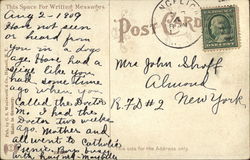 This Space For Writing Messages
Aug 2 - 1909
Have not seen
or heard from
you in a dogs
age. Have had a
siege like you
had some time
ago when you
Called the Doctor
Mr. I had the
Doctor two weeks
ago. Mother and
all went to Catholic
with
POST CARD
ANGELICA
Mrs John Shoff
Almond
R.F.D #2
New York
This side for the Address only.